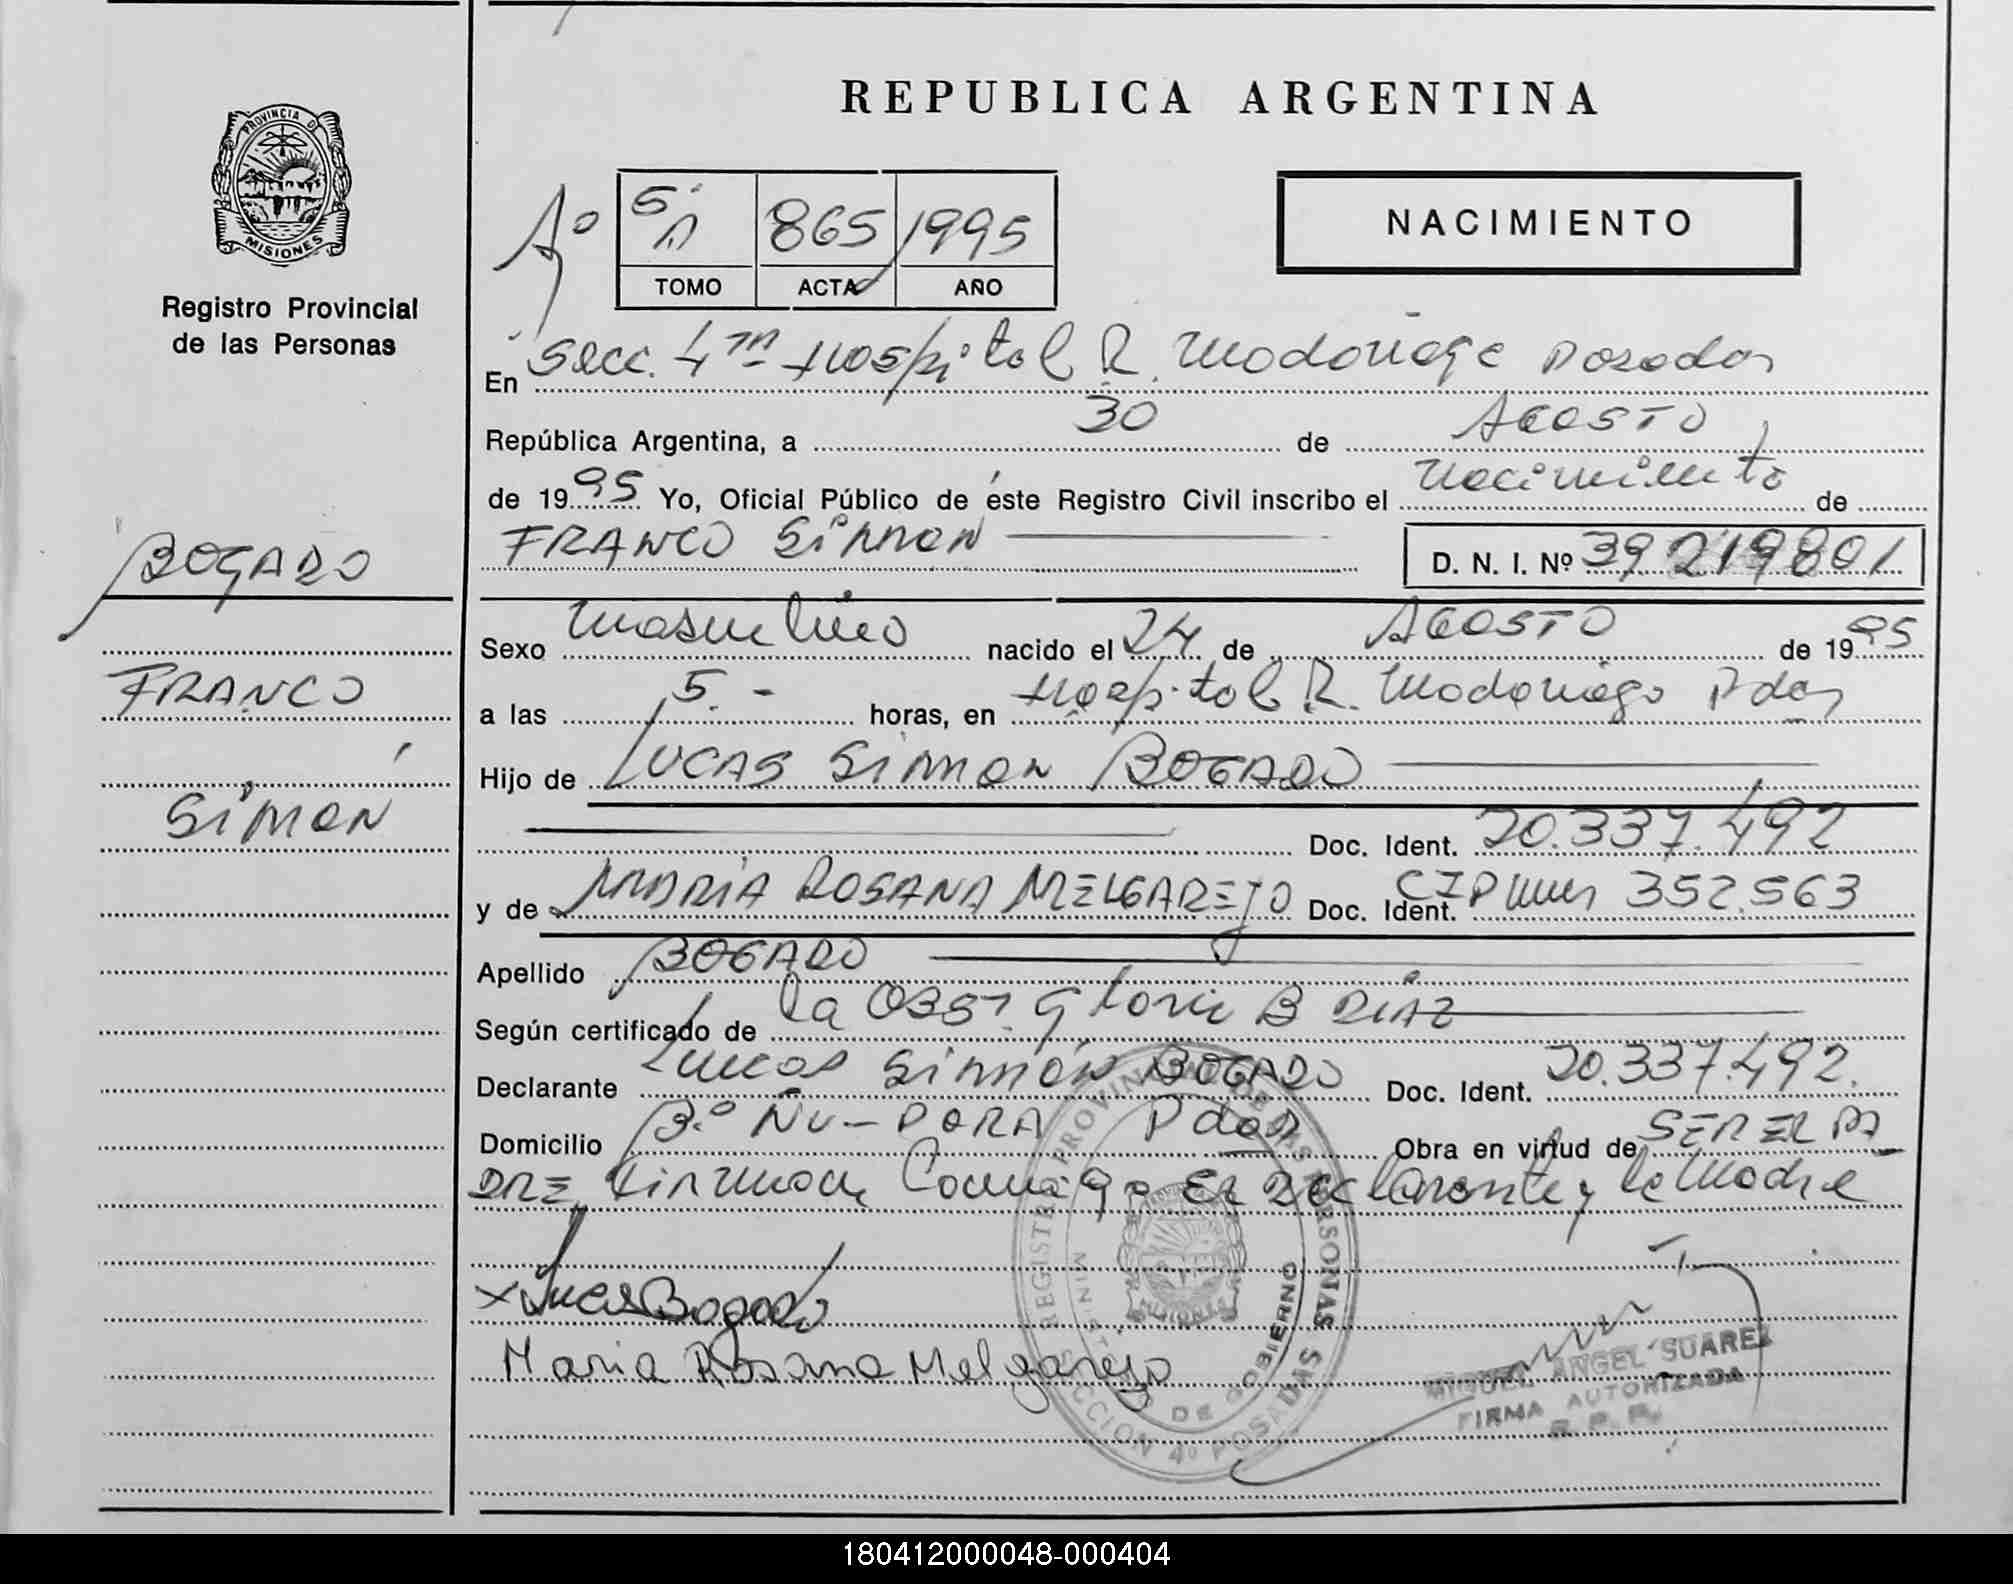 PROVINCIA DE
MISIONES
Registro Provincial
de las Personas
BOGADO
FRANCO
SIMON
REPUBLICA ARGENTINA
Aº
5º 865 1995
TOMO ACTA AÑO
NACIMIENTO
En Secc. 4ta Hospital R. Madariaga Posadas
República Argentina, a 30 de AGOSTO
de 1995 Yo, Oficial Público de éste Registro Civil inscribo el nacimiento de
FRANCO SIMON D. N. I. Nº 39219801
Sexo masculino nacido el 24 de AGOSTO de 1995
a las 5.- horas, en Hospital R. Madariaga Pdas
Hijo de LUCAS SIMON BOGADO
Doc. Ident. 20.337.492
y de MARIA ROSANA MELGAREJO Doc. Ident. CIPMnes 352.563
Apellido BOGADO
Según certificado de la OBST Gloria B DIAZ
Declarante Lucas SIMON BOGADO Doc. Ident. 20.337.492.
Domicilio Bº ÑU-PORA Pdas Obra en virtud de SER EL PA
DRE Firman Conmigo El Declarante y la Madre
x Lucas Bogado
Maria Rosana Melgarejo
REGISTRO PROVINCIAL DE LAS PERSONAS
MINISTERIO DE GOBIERNO
SECCION 4º POSADAS
MISIONES
MIGUEL ANGEL SUAREZ
FIRMA AUTORIZADA
R. P. P.
180412000048-000404